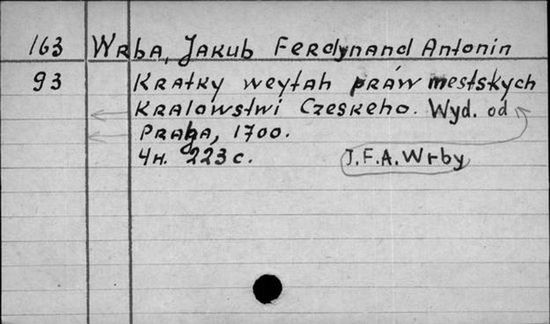 163 Wrba, Jakub Ferdynand Antonin
93 Kratky weytah práw mestskych
Kralowstwi Czeskeho. Wyd. od
Praga, 1700.
4н. 223 с. J.F.A. Wrby